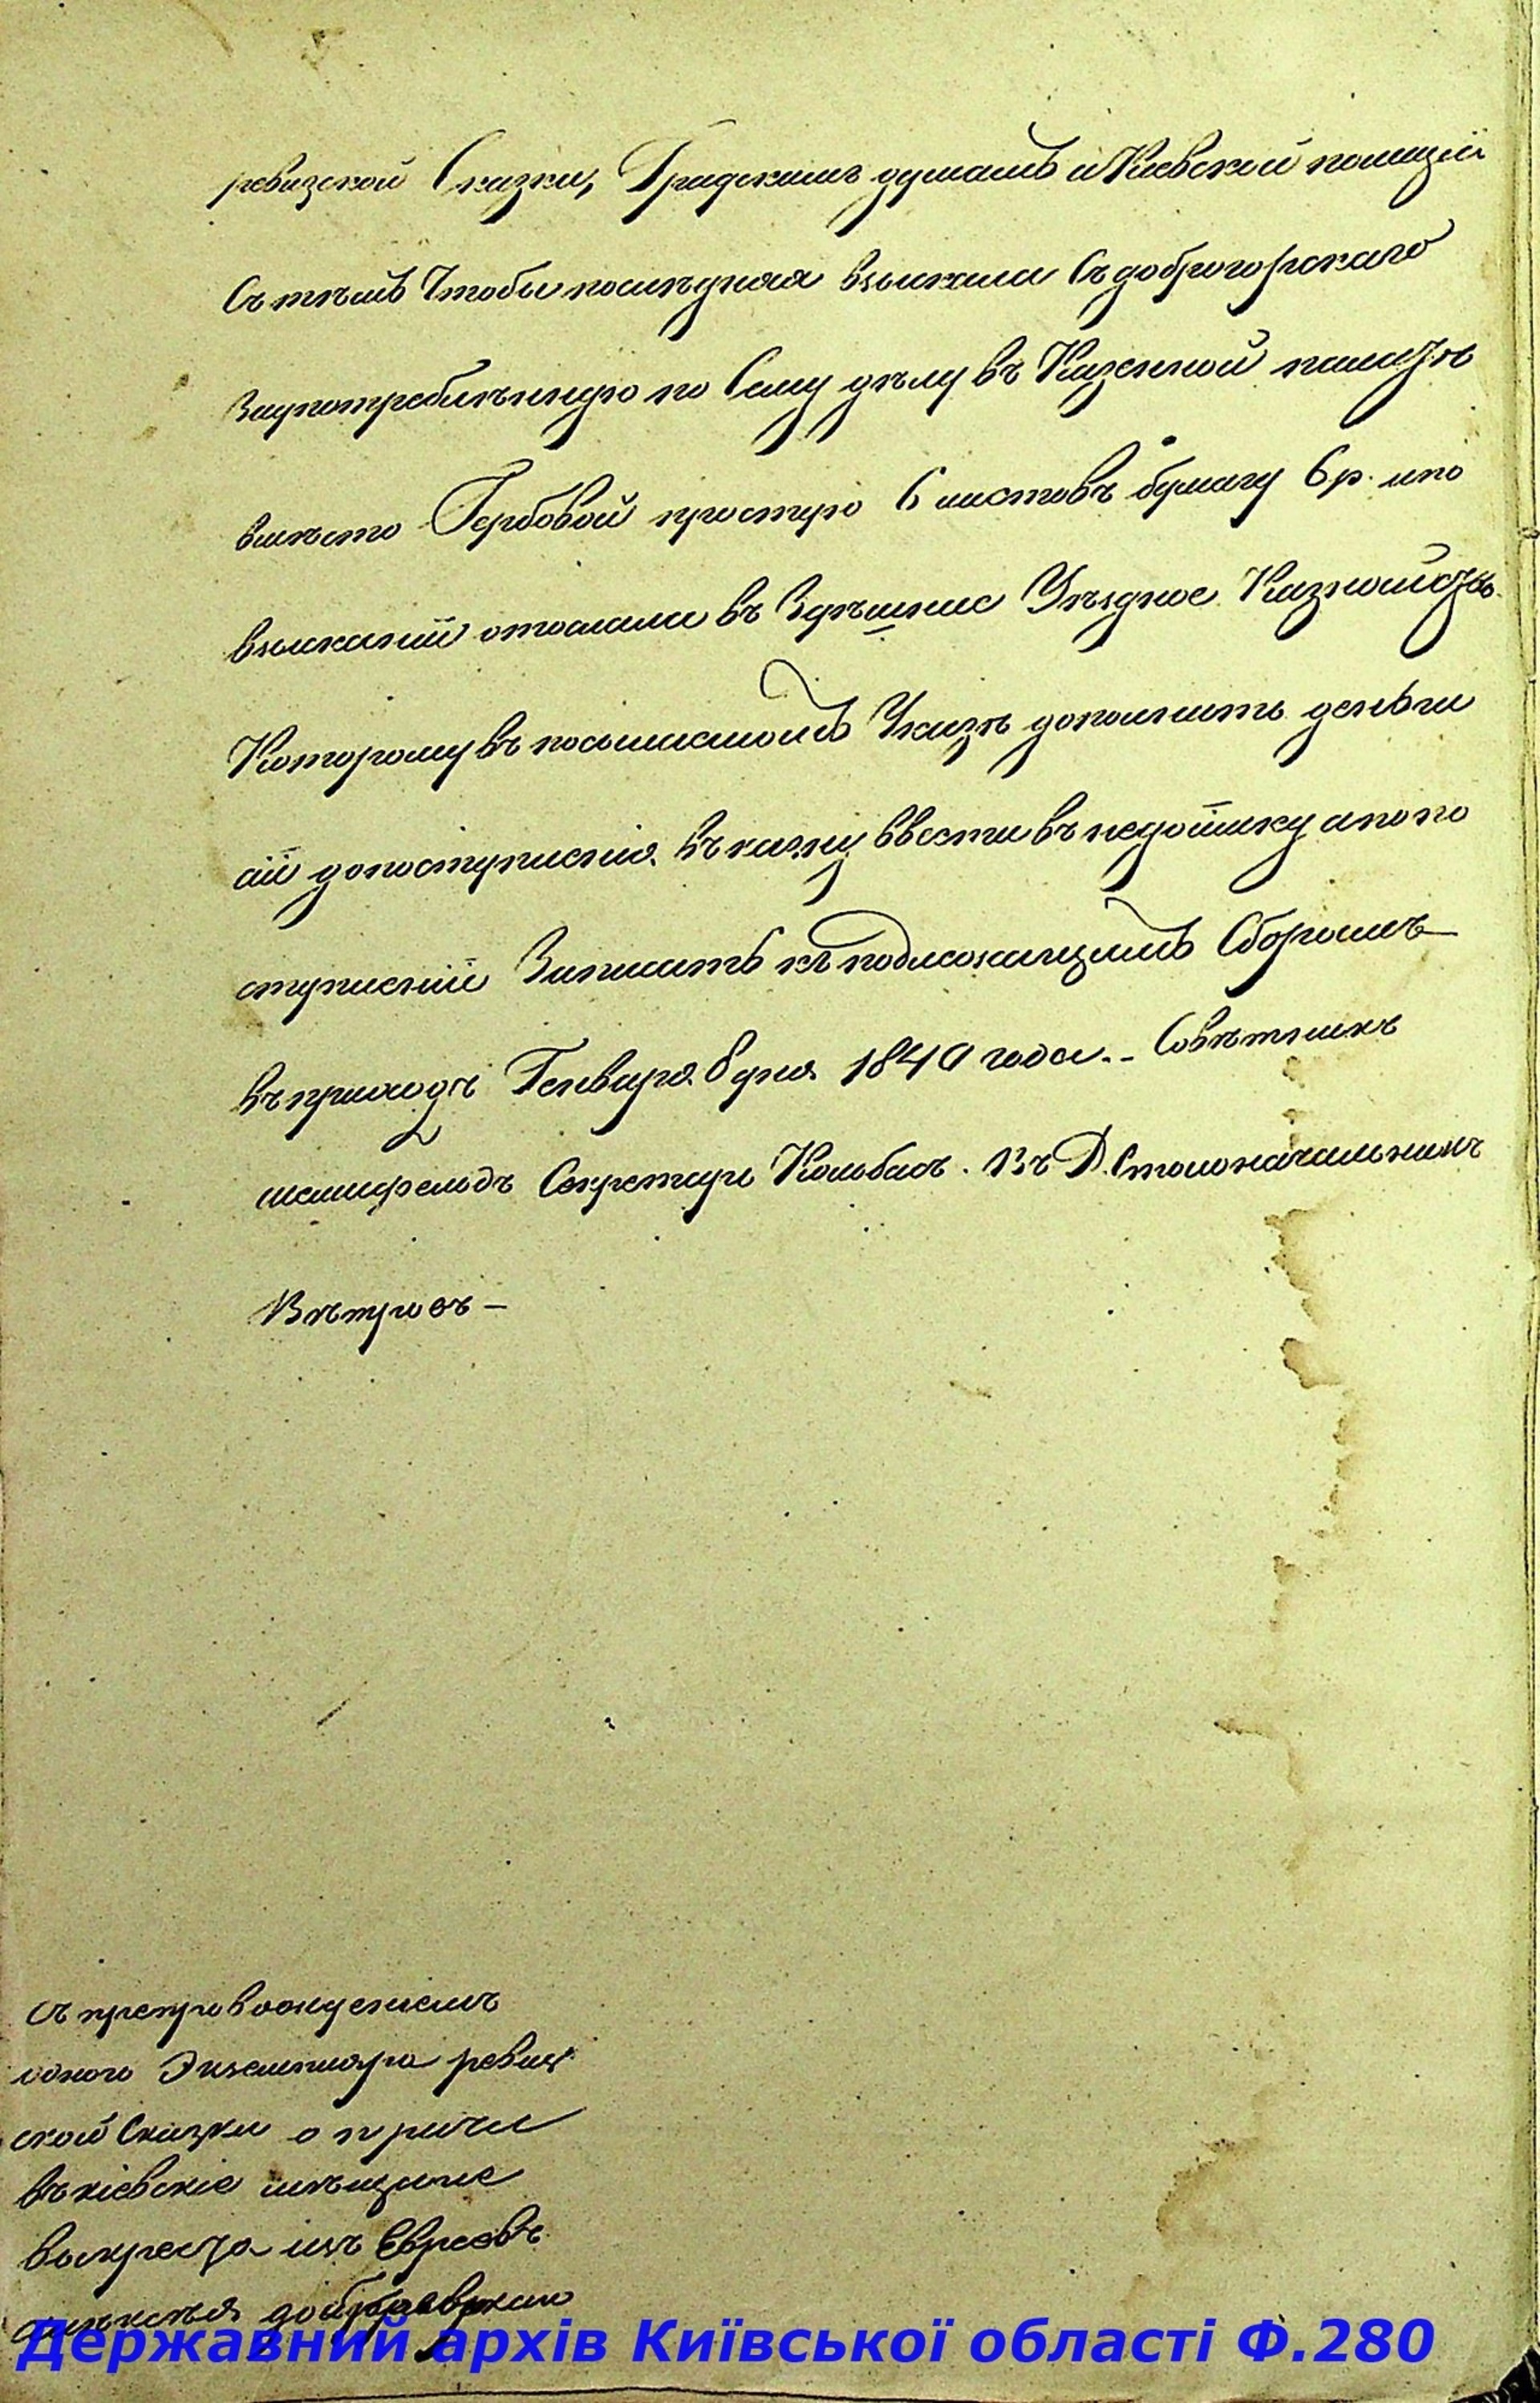 ревизской Сказки, Градскимъ думамъ и Киевской полиціи
Съ тѣмъ Чтобы последняя взыскала Съ доброгорскаго
Заупотребленную по Сему дѣлу въ Казенной палатѣ
вмѣсто Гербовой простую 6 листовъ бумагу 6 р. ипо
взысканіи отослала въ Здѣшнее Уѣздное Казначейство
Которому въ посылаемомъ Указѣ дополнить деньги
сіи допоступленія въ казну ввести въ недоимку апопо
ступленіи Записать къ подлежащимъ Сборамъ
въ приходъ Генваря 8 дня 1840 года.- Совѣтникъ
Секретарь Колбас. Въ Д. Столоначальника
Вѣтровъ -
съ препровожденіемъ
одного Экземпляра ревиз
ской Сказки о причи
въ кіевскіе мѣщане
выкреста изъ Евреевъ
Алексѣя
Державний архів Київської області Ф.280